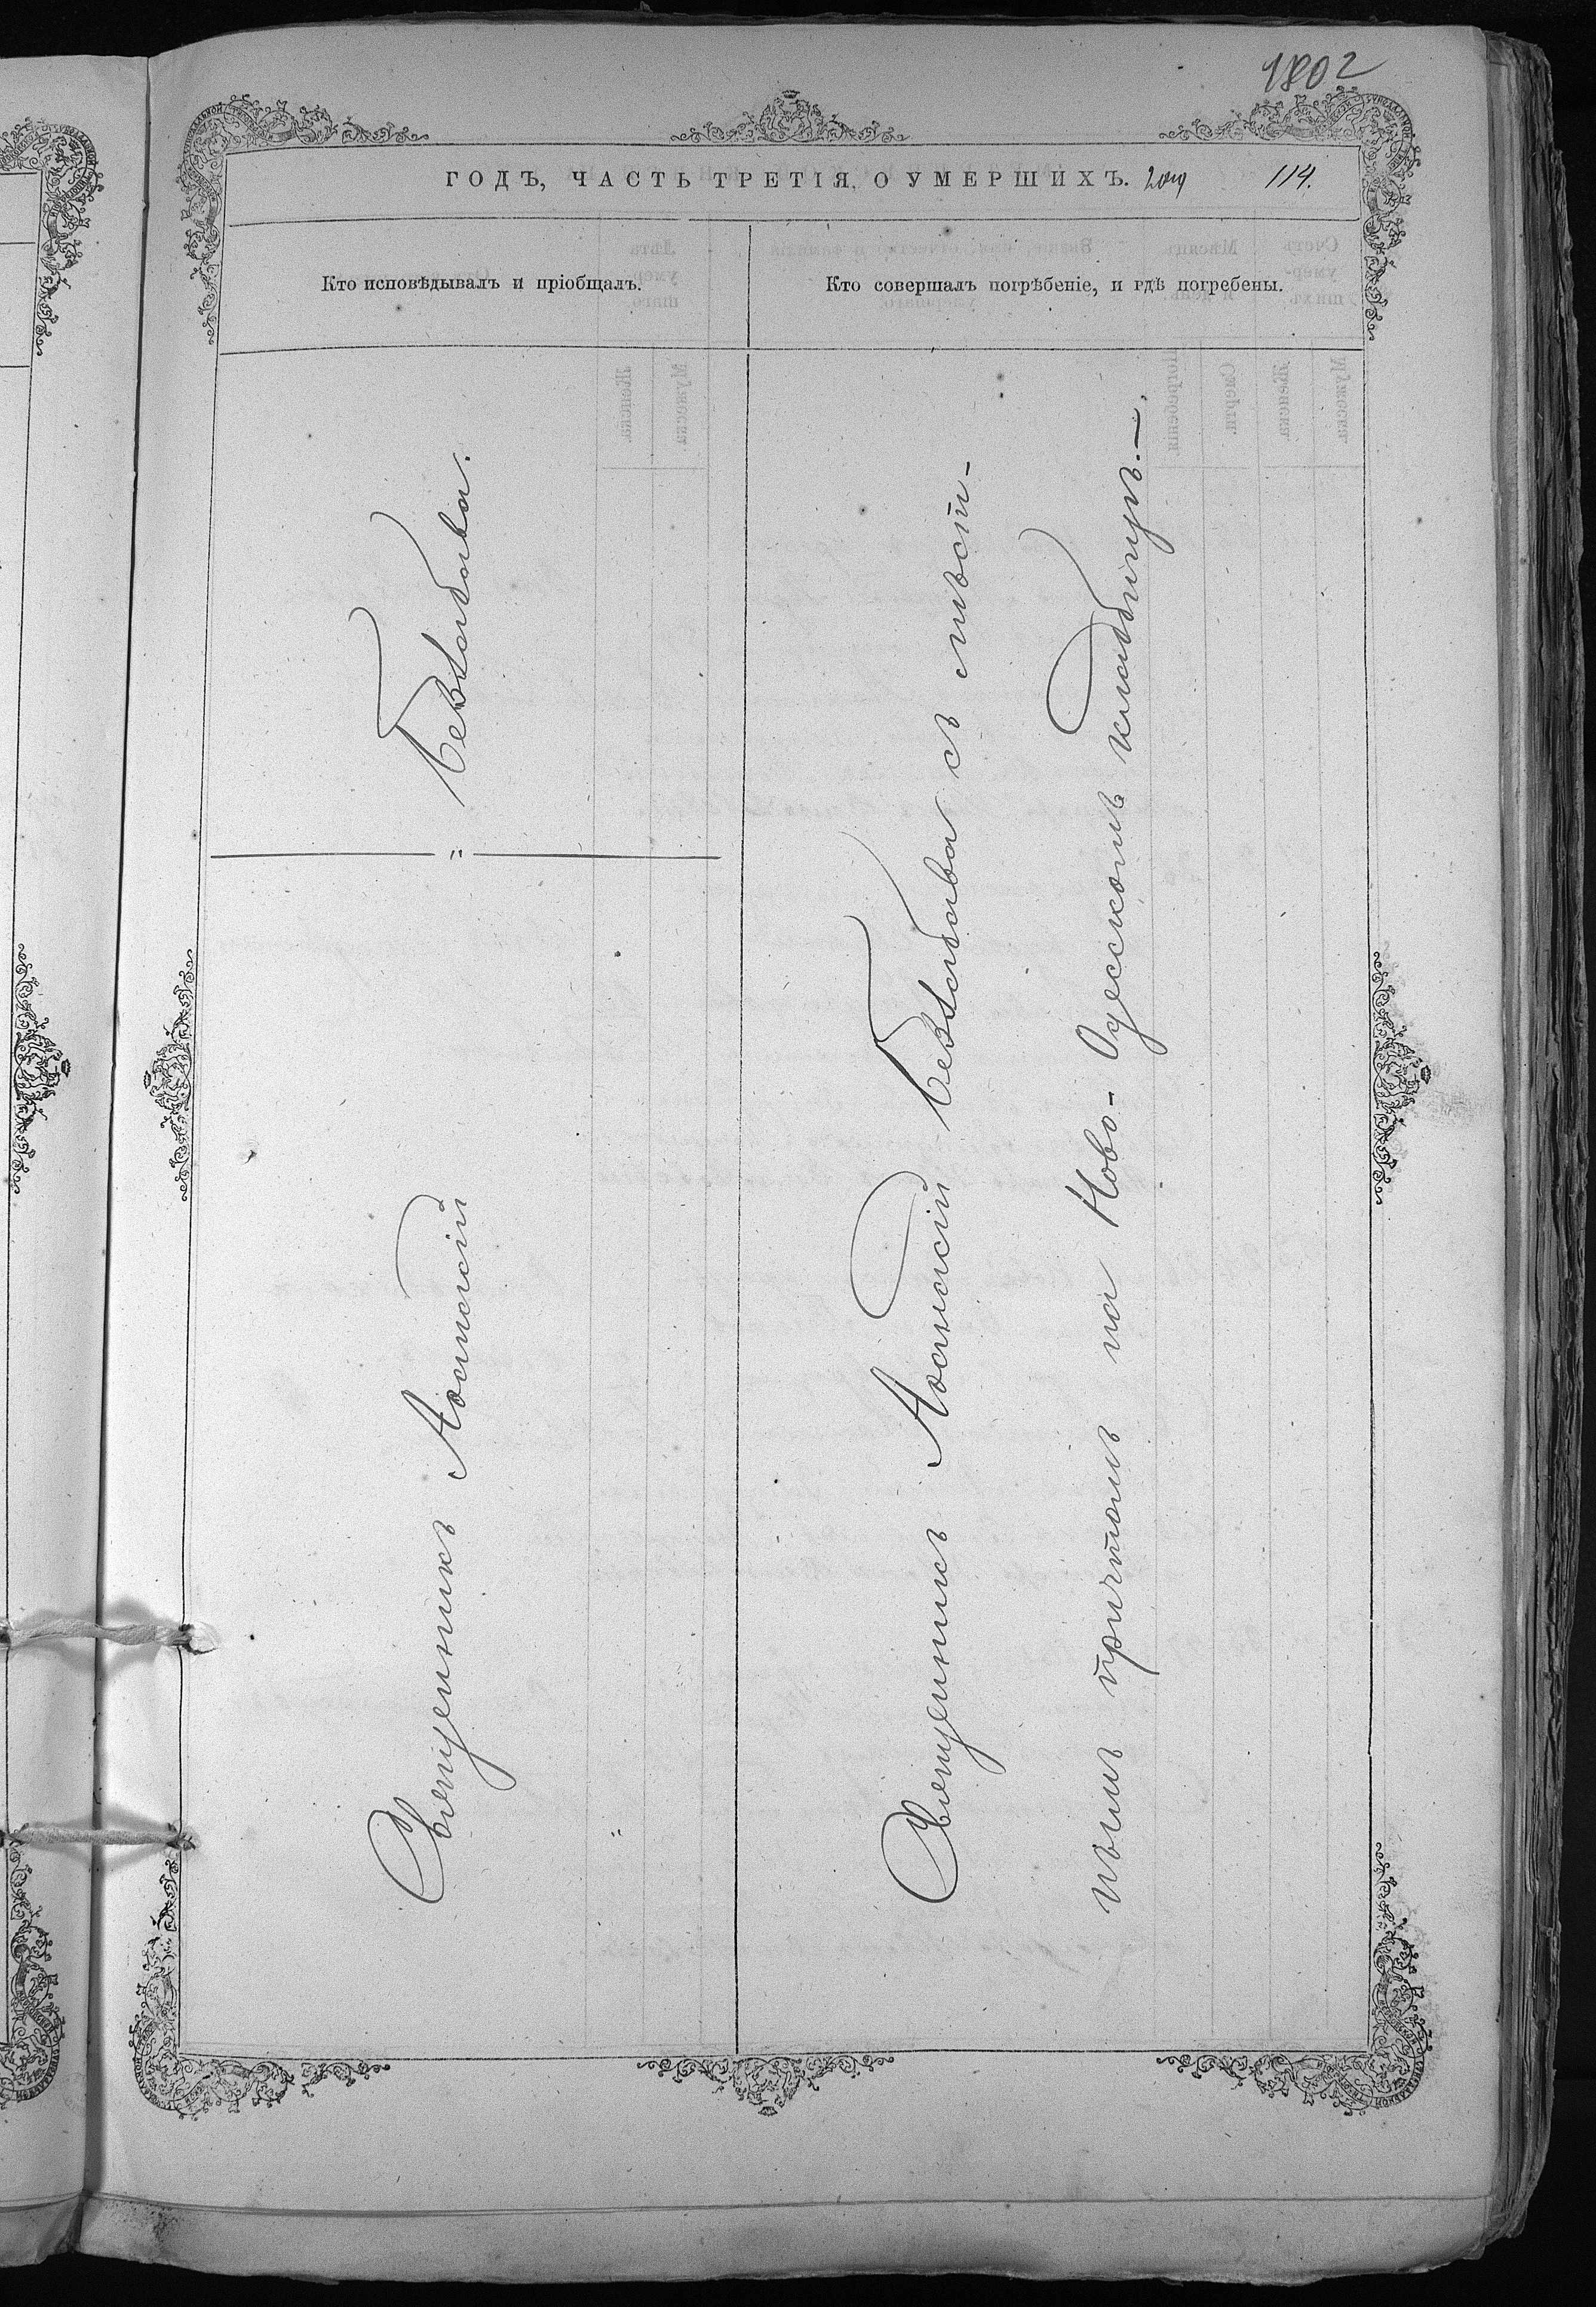 1802
ГОДЪ, ЧАСТЬ ТРЕТІЯ, О УМЕРШИХЪ. 114.
Кто исповѣдывалъ и пріобщалъ.
Кто совершалъ погрѣбеніе, и гдѣ погребены.
Священникъ Аѳанасій
Священникъ Аѳанасій съ мѣст-
нымъ причтомъ на Ново-Одесскомъ кладбищѣ.—